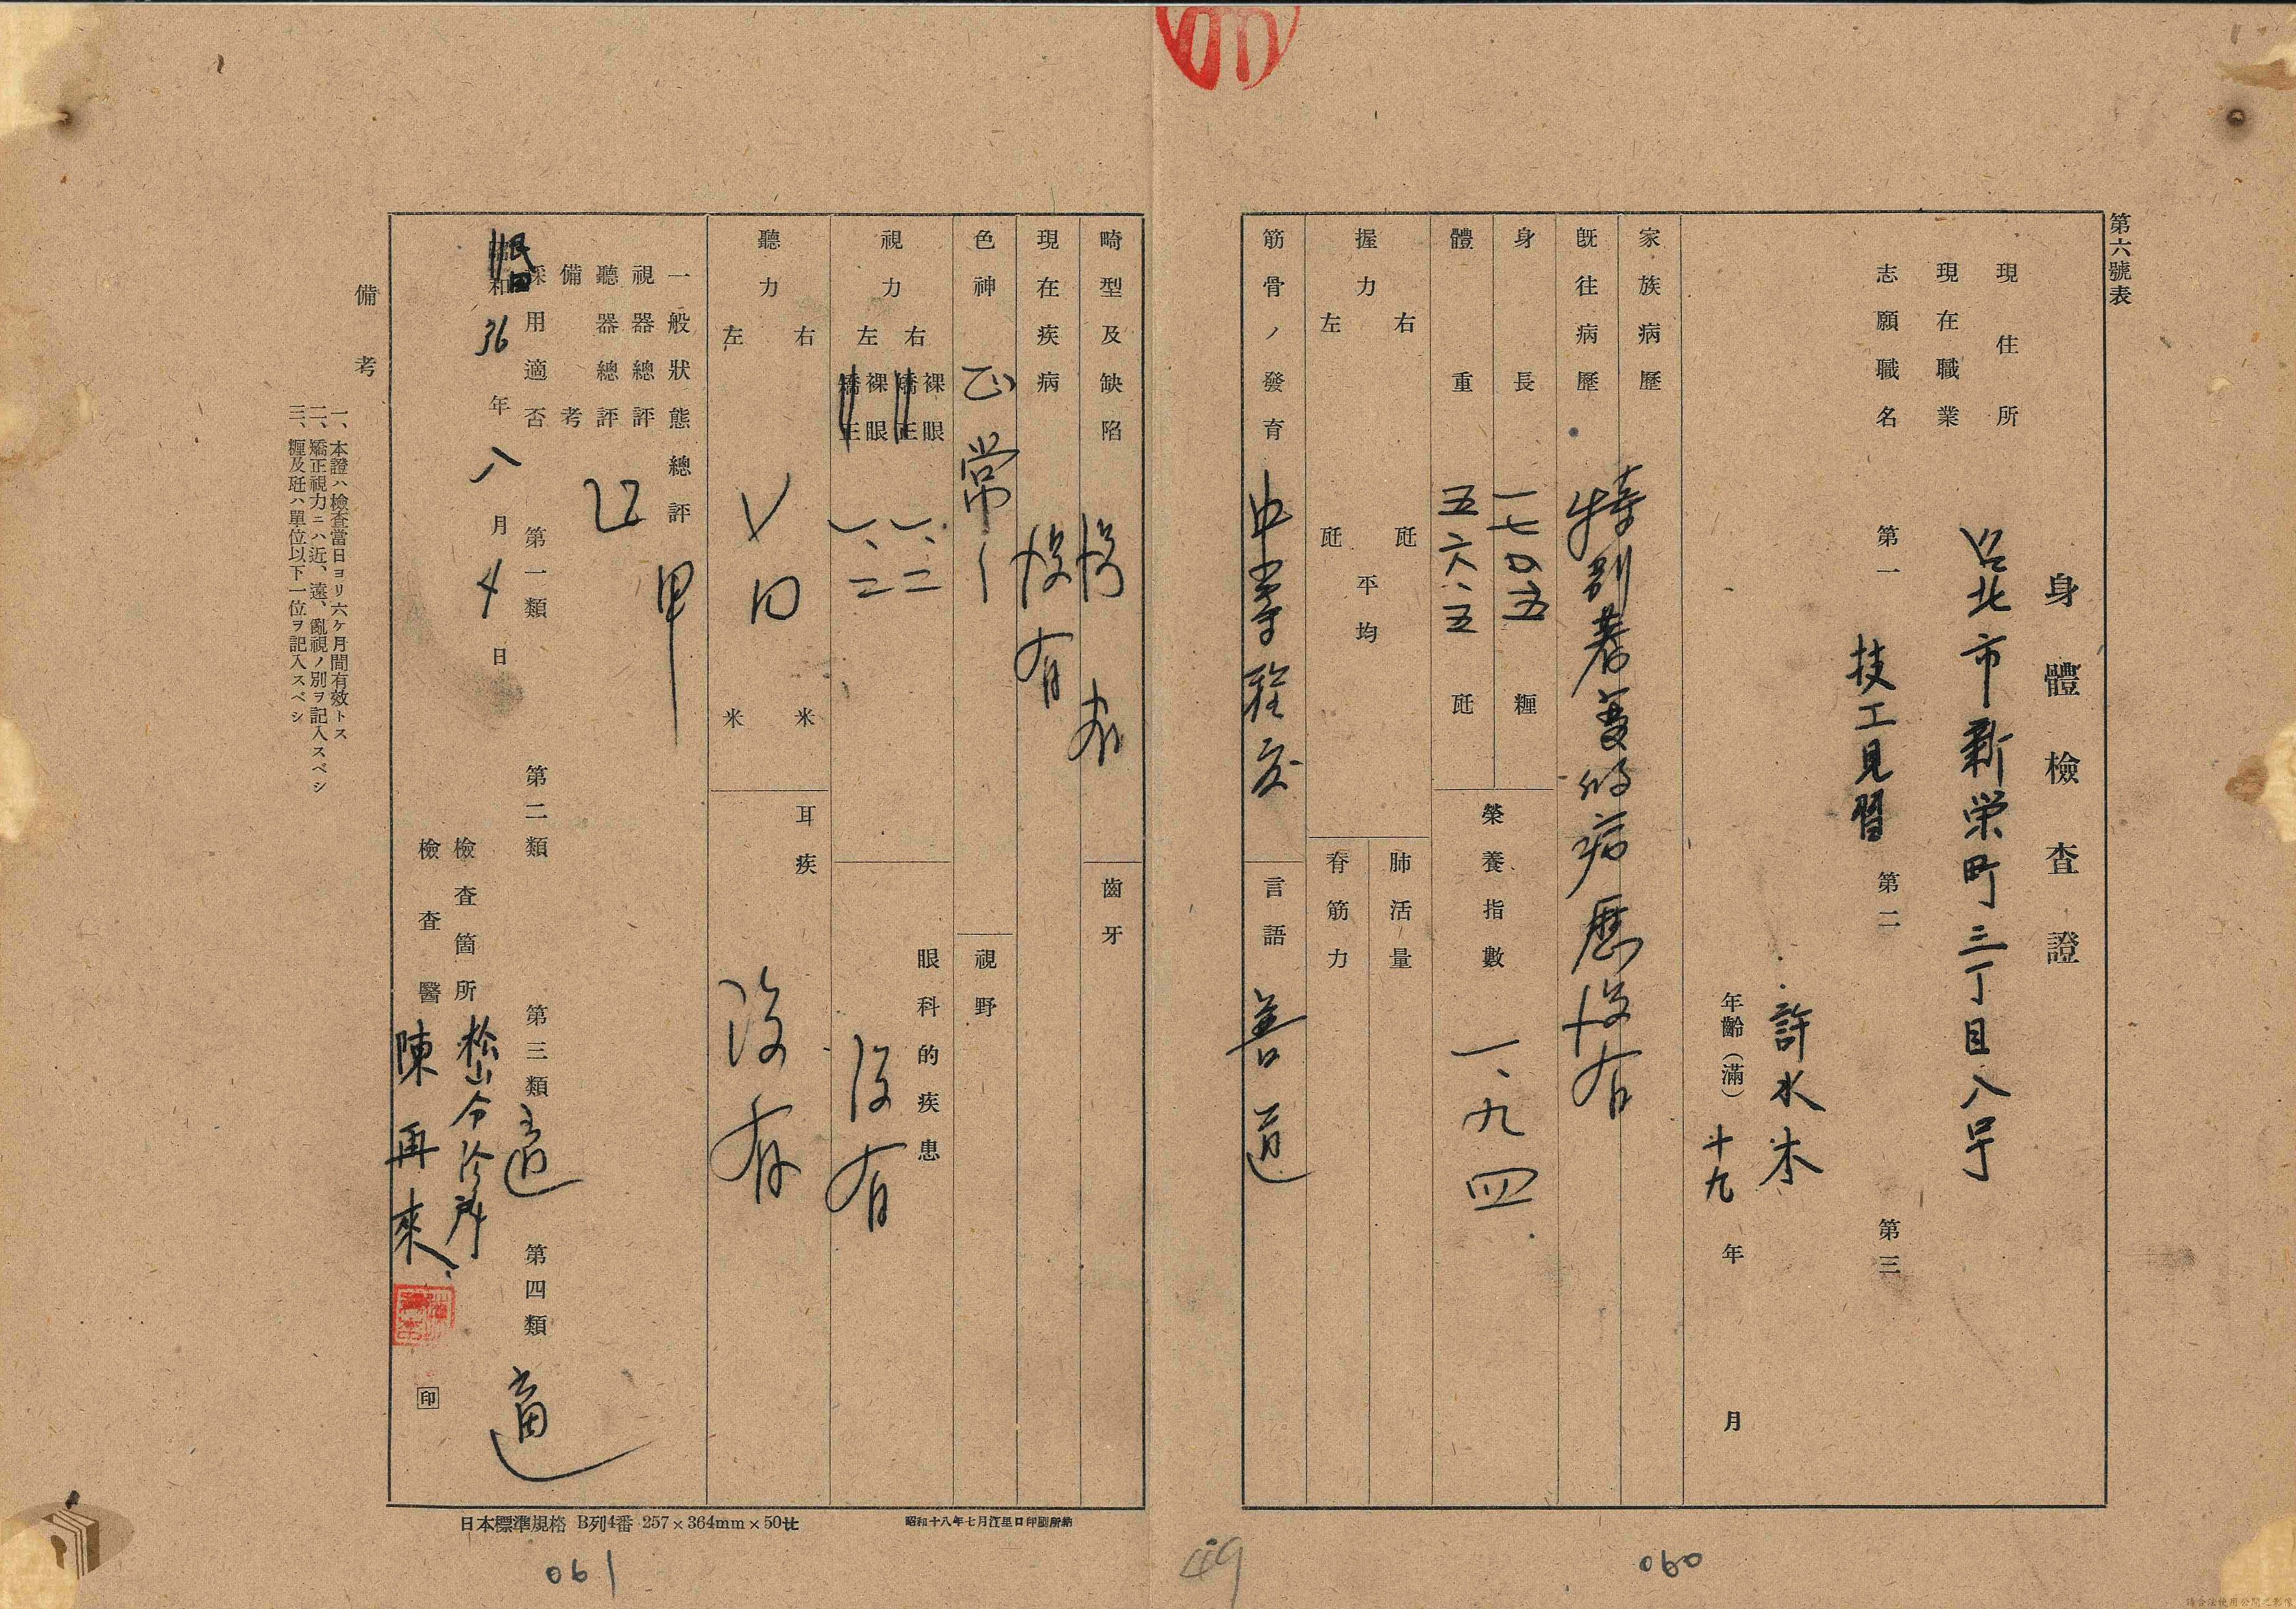 第六號表
身體檢查證
現住所 台北市新栄町三丁目八号
現在職業
志願職名 第一 技工見習 第二 第三
許水木
年齡(滿) 十九年 月
家族病歷
既往病歷 特別著蔓的病歷沒有
身長 一七〇五 糎
體重 五六、五 瓩
榮養指數 一、九四
握力 右 瓩
左 瓩
平均
肺活量
脊筋力
筋骨ノ發育 中等程度
言語 普通
畸型及缺陷 沒有
齒牙
現在疾病 沒有
色神 正常
視野
視力 右 裸眼 一、二
矯正
左 裸眼 一、二
矯正
眼科的疾患 沒有
聽力 右 米
左 米
耳疾 沒有
一般狀態總評 甲
視器總評
聽器總評
備考
採用適否 第一類 第二類 第三類 第四類 適
民田 36年八月4日
檢查箇所 松山
檢查醫 陳再來 印
備考
一、本證ハ檢查當日ヨリ六ケ月間有效トス
二、矯正視力ニハ近、遠、亂視ノ別ヲ記入スベシ
三、糎及瓩ハ單位以下一位ヲ記入スベシ
日本標準規格 B列4番 257×364mm×50
060
49
061